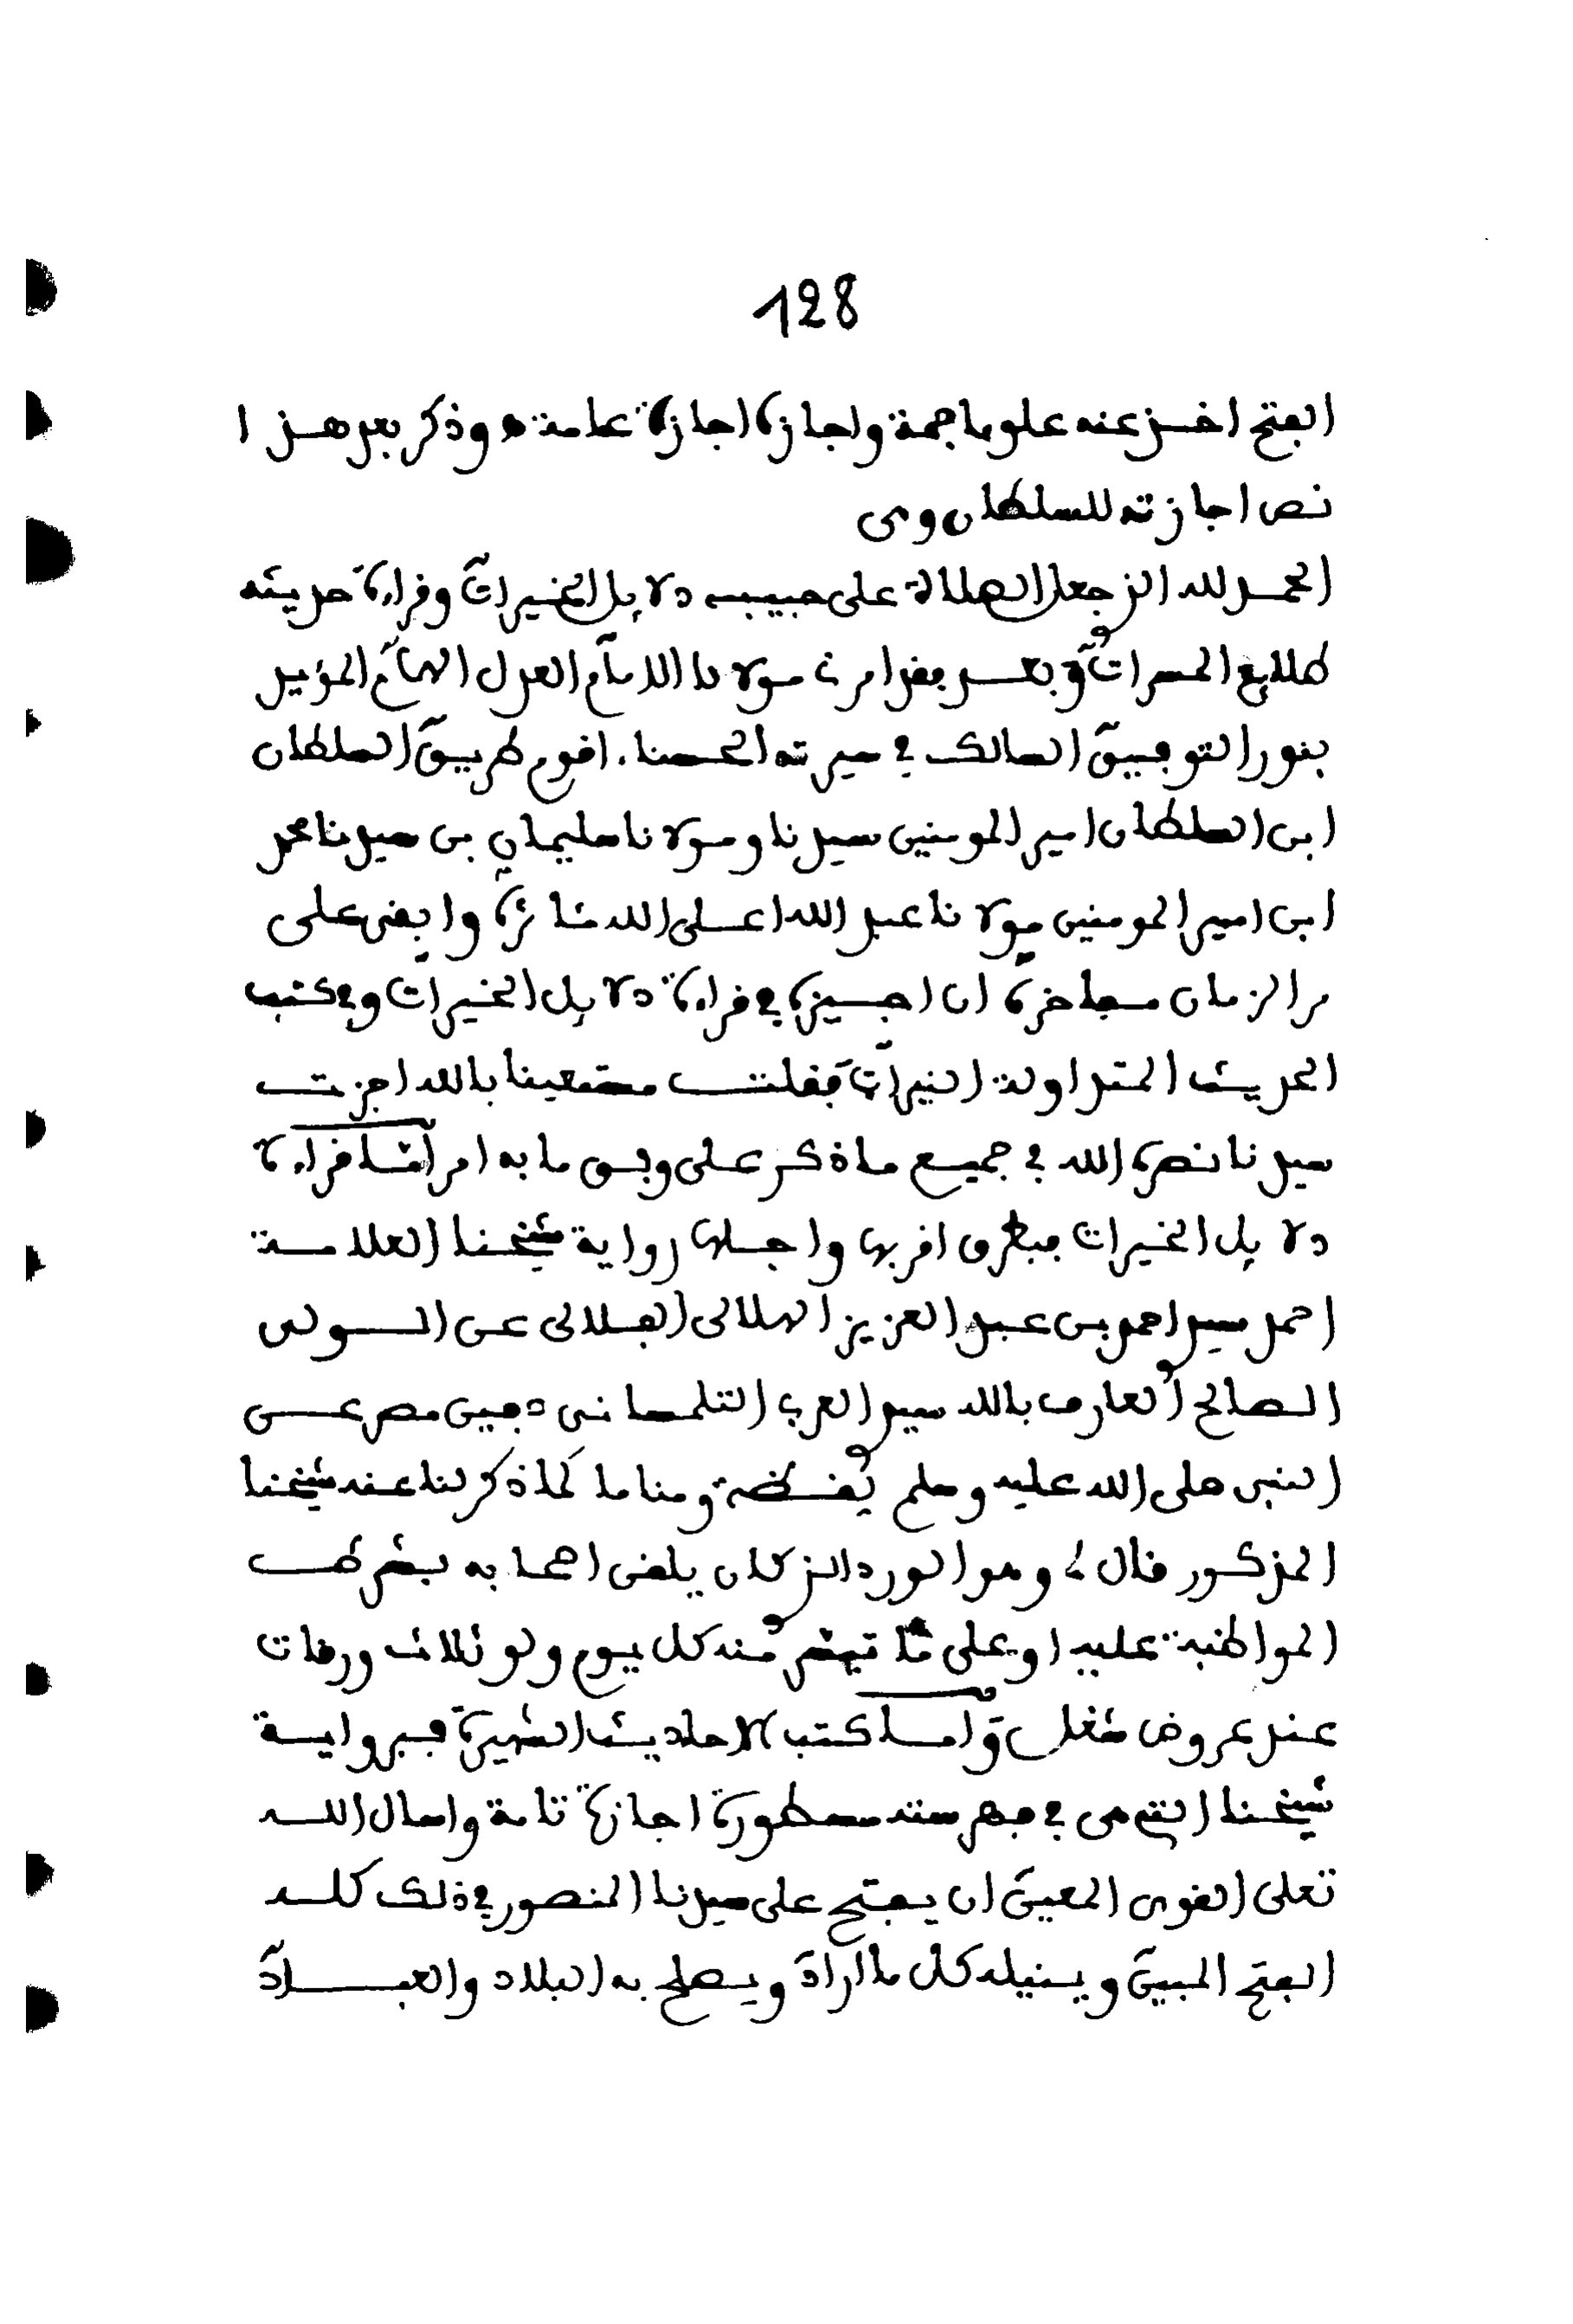 128
الفتح اخذ عنه علوما جمة واجازه اجازة عامة ه وذكر بعد هذا
نص اجازته للسلطان وهى
الحمد لله الذي جعل الصلاة على حبيبه دلايل الخيرات وقراءة حديثه
طلايع المسرات وبعد فقد امرني مولانا الامام العدل الهمام المؤيد
بنور التوفيق السالك في سيرته الحسناء اقوم طريق السلطان
ابن السلطان امير المومنين سيدنا ومولانا سليمان بن سيدنا محمد
ابن امير المومنين مولانا عبد الله اعلى الله منازه وابقى على
مر الزمان مفاخره ان اجيزه في قراءة دلايل الخيرات وفي كتب
الحديث المتداولة النيرات فقلت مستعينا بالله اجزت
سيدنا نصره الله في جميع ما ذكر على وفق ما به امر اما قراءة
دلايل الخيرات فبطرق اقربها واجلها رواية شيخنا العلامة
احمد سيدي احمد بن عبد العزيز الهلالى الفلالى عن الولى
الصالح العارف بالله سيدي العربي التلمسانى دفين مصر عن
النبى صلى الله عليه وسلم يقظة ومناما كما ذكر لنا عنه شيخنا
المذكور قال لي وهو الورد الذي كان يلقى اصحابه بشرط
المواظبة عليه او على ما تيسر منه كل يوم ولو ثلاث ورقات
عند عروض شغل واما كتب الاحاديث الشهيرة فبرواية
شيخنا التي هى في فهرسته مسطورة اجازة تامة واسال الله
تعلى القوى المعين ان يفتح على سيدنا المنصور في ذلك كله
الفتح المبين وينيله كل ما اراد ويصلح به البلاد والعباد